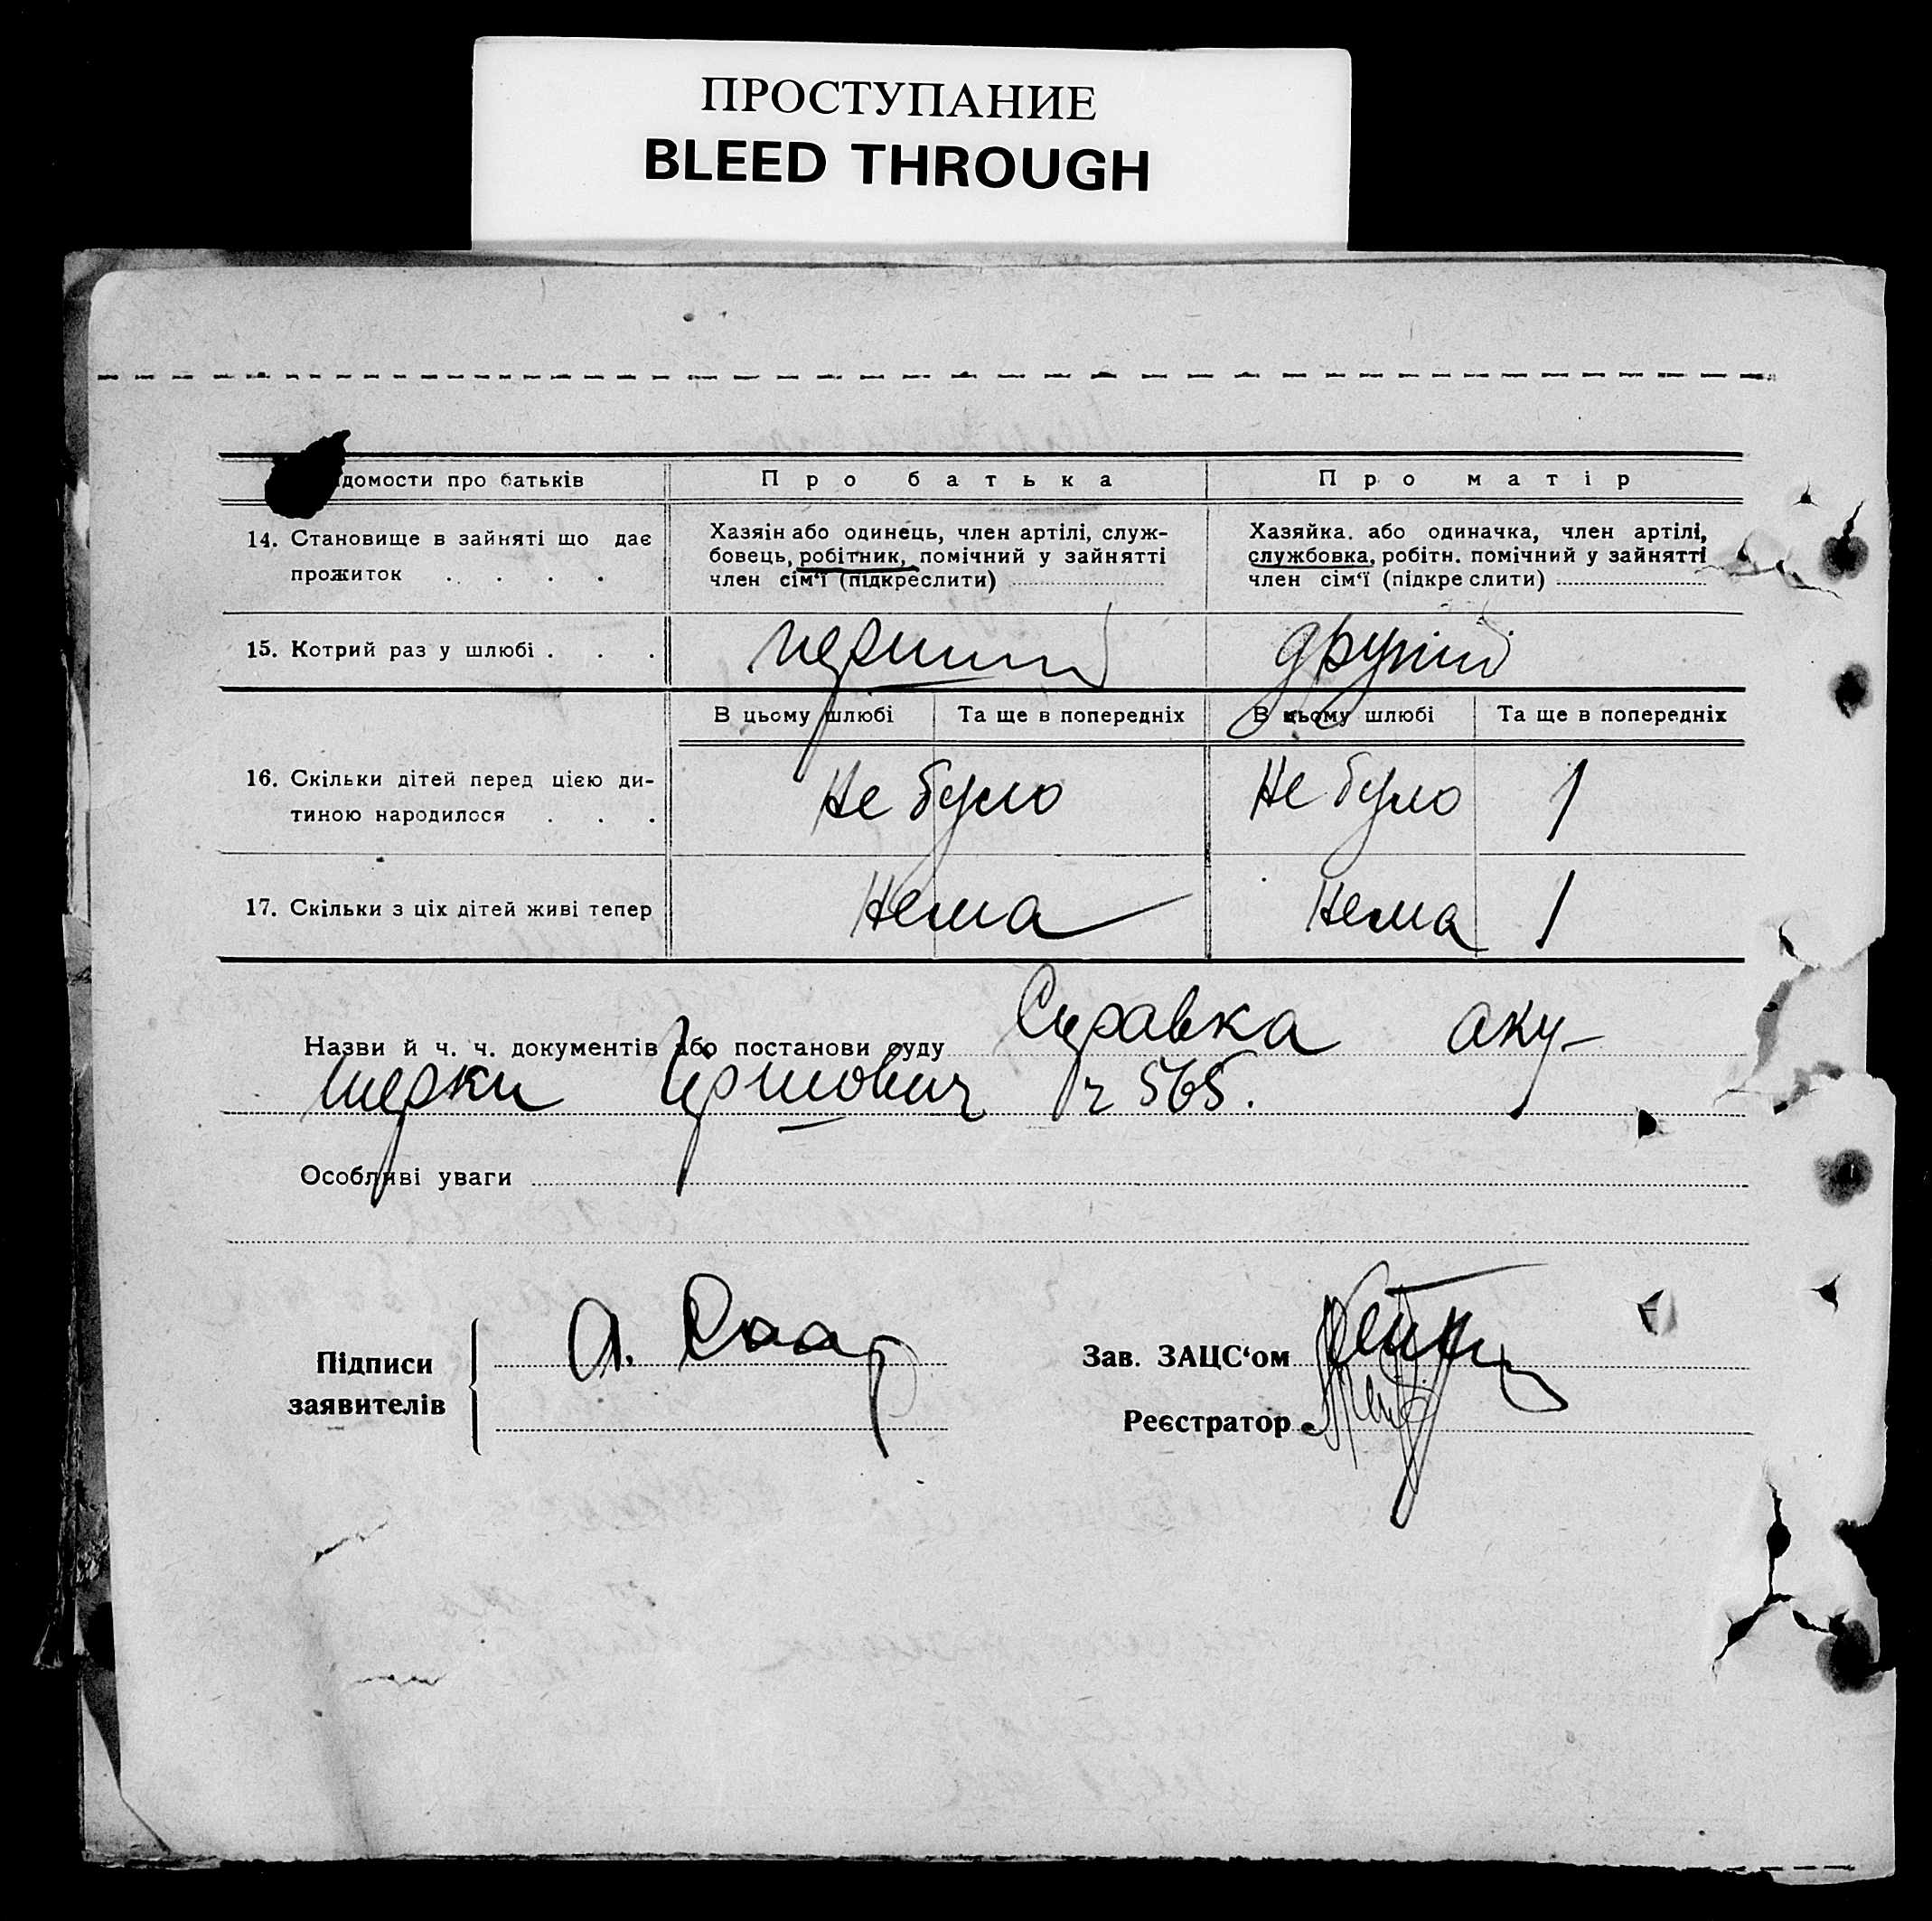 ПРОСТУПАНИЕ
BLEED THROUGH
домости про батьків
Про батька
Про матір
14. Становище в зайняті що дає
прожиток . . . .
Хазяін або одинець, член артілі, служ-
бовець, робітник, помічний у зайнятті
член сім‘ї (підкреслити)
Хазяйка. або одиначка, член артілі,
службовка, робітн. помічний у зайнятті
член сім‘ї (підкреслити)
15. Котрий раз у шлюбі . . .
перший
другий
В цьому шлюбі
Та ще в попередніх
В цьому шлюбі
Та ще в попередніх
16. Скільки дітей перед цією ди-
тиною народилося . . .
Не було
Не було
1
17. Скільки з ціх дітей живі тепер
Нема
Нема
1
Назви й ч. ч. документів або постанови суду Справка аку-
шерки ч 565.
Особливі уваги
Підписи
заявителів
А.
Зав. ЗАЦС‘ом
Реєстратор